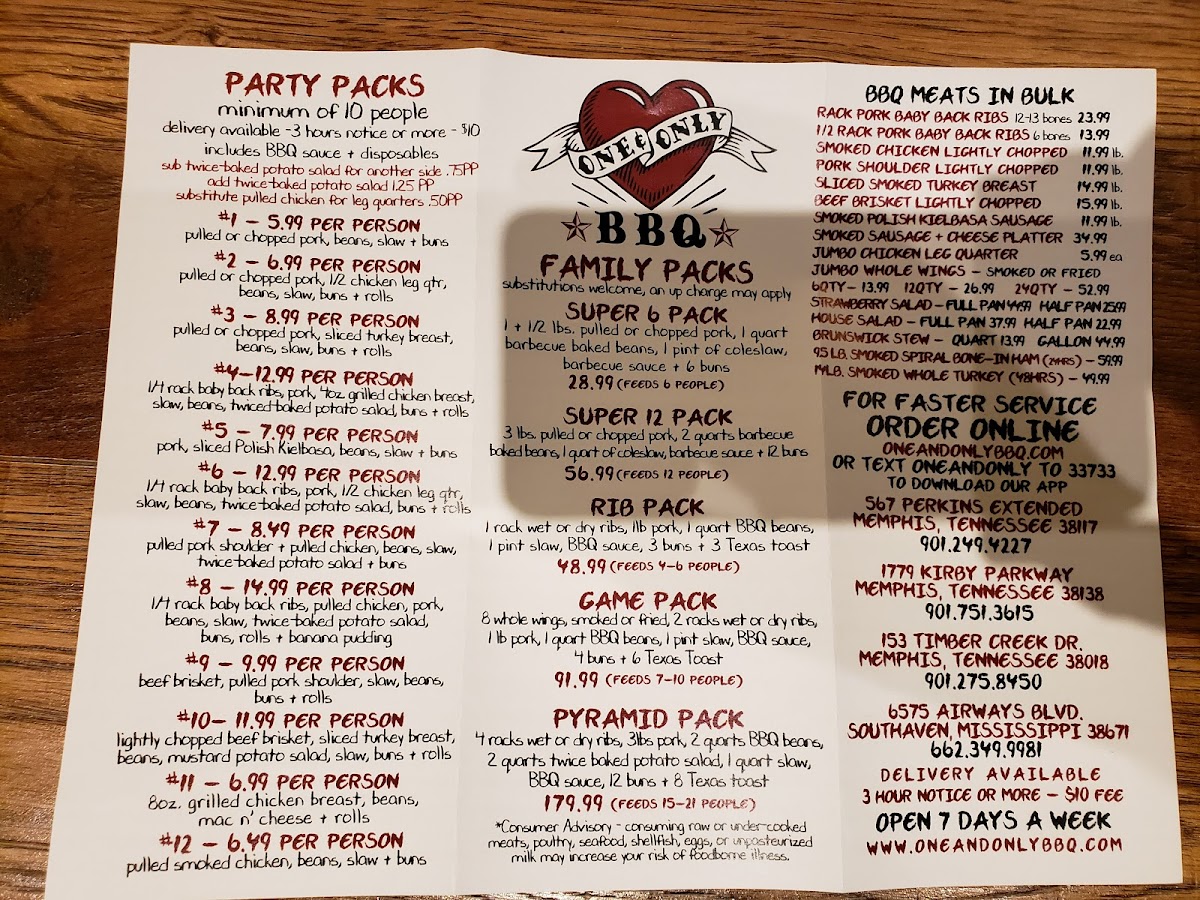 PARTY PACKS
minimum of 10 people
delivery available - 3 hours notice or more - $10
includes BBQ sauce + disposables
sub twice-baked potato salad for another side .75PP
add twice-baked potato salad 1.25 PP
substitute pulled chicken for leg quarters .50PP
#1 - 5.99 PER PERSON
pulled or chopped pork, beans, slaw + buns
#2 - 6.99 PER PERSON
pulled or chopped pork, 1/2 chicken leg qtr,
beans, slaw, buns + rolls
#3 - 8.99 PER PERSON
pulled or chopped pork, sliced turkey breast,
beans, slaw, buns + rolls
#4-12.99 PER PERSON
1/4 rack baby back ribs, pork, 4oz grilled chicken breast,
slaw, beans, twiced-baked potato salad, buns + rolls
#5 - 7.99 PER PERSON
pork, sliced Polish Kielbasa, beans, slaw + buns
#6 - 12.99 PER PERSON
1/4 rack baby back ribs, pork, 1/2 chicken leg qtr,
slaw, beans, twice-baked potato salad, buns + rolls
#7 - 8.49 PER PERSON
pulled pork shoulder + pulled chicken, beans, slaw,
twice-baked potato salad + buns
#8 - 14.99 PER PERSON
1/4 rack baby back ribs, pulled chicken, pork,
beans, slaw, twice-baked potato salad,
buns, rolls + banana pudding
#9 - 9.99 PER PERSON
beef brisket, pulled pork shoulder, slaw, beans,
buns + rolls
#10- 11.99 PER PERSON
lightly chopped beef brisket, sliced turkey breast,
beans, mustard potato salad, slaw, buns + rolls
#11 - 6.99 PER PERSON
8oz. grilled chicken breast, beans,
mac n' cheese + rolls
#12 - 6.49 PER PERSON
pulled smoked chicken, beans, slaw + buns
ONE & ONLY
BBQ
FAMILY PACKS
substitutions welcome, an up charge may apply
SUPER 6 PACK
1 + 1/2 lbs. pulled or chopped pork, 1 quart
barbecue baked beans, 1 pint of coleslaw,
barbecue sauce + 6 buns
28.99 (FEEDS 6 PEOPLE)
SUPER 12 PACK
3 lbs. pulled or chopped pork, 2 quarts barbecue
baked beans, 1 quart of coleslaw, barbecue sauce + 12 buns
56.99 (FEEDS 12 PEOPLE)
RIB PACK
1 rack wet or dry ribs, 1lb pork, 1 quart BBQ beans,
1 pint slaw, BBQ sauce, 3 buns + 3 Texas toast
48.99 (FEEDS 4-6 PEOPLE)
GAME PACK
8 whole wings, smoked or fried, 2 racks wet or dry ribs,
1 lb pork, 1 quart BBQ beans, 1 pint slaw, BBQ sauce,
4 buns + 6 Texas Toast
91.99 (FEEDS 7-10 PEOPLE)
PYRAMID PACK
4 racks wet or dry ribs, 3lbs pork, 2 quarts BBQ beans,
2 quarts twice baked potato salad, 1 quart slaw,
BBQ sauce, 12 buns + 8 Texas toast
179.99 (FEEDS 15-21 PEOPLE)
*Consumer Advisory - consuming raw or under-cooked
meats, poultry, seafood, shellfish, eggs, or unpasteurized
milk may increase your risk of foodborne illness.
BBQ MEATS IN BULK
RACK PORK BABY BACK RIBS 12-13 bones 23.99
1/2 RACK PORK BABY BACK RIBS 6 bones 13.99
SMOKED CHICKEN LIGHTLY CHOPPED 11.99 lb.
PORK SHOULDER LIGHTLY CHOPPED 11.99 lb.
SLICED SMOKED TURKEY BREAST 14.99 lb.
BEEF BRISKET LIGHTLY CHOPPED 15.99 lb.
SMOKED POLISH KIELBASA SAUSAGE 11.99 lb.
SMOKED SAUSAGE + CHEESE PLATTER 34.99
JUMBO CHICKEN LEG QUARTER 5.99 ea
JUMBO WHOLE WINGS - SMOKED OR FRIED
6QTY - 13.99 12QTY - 26.99 24QTY - 52.99
STRAWBERRY SALAD - FULL PAN 44.99 HALF PAN 25.99
HOUSE SALAD - FULL PAN 37.99 HALF PAN 22.99
BRUNSWICK STEW - QUART 13.99 GALLON 44.99
9.5 LB. SMOKED SPIRAL BONE-IN HAM (24HRS) - 59.99
14LB. SMOKED WHOLE TURKEY (48HRS) - 49.99
FOR FASTER SERVICE
ORDER ONLINE
ONEANDONLYBBQ.COM
OR TEXT ONEANDONLY TO 33733
TO DOWNLOAD OUR APP
567 PERKINS EXTENDED
MEMPHIS, TENNESSEE 38117
901.249.4227
1779 KIRBY PARKWAY
MEMPHIS, TENNESSEE 38138
901.751.3615
153 TIMBER CREEK DR.
MEMPHIS, TENNESSEE 38018
901.275.8450
6575 AIRWAYS BLVD.
SOUTHAVEN, MISSISSIPPI 38671
662.349.9981
DELIVERY AVAILABLE
3 HOUR NOTICE OR MORE - $10 FEE
OPEN 7 DAYS A WEEK
WWW.ONEANDONLYBBQ.COM